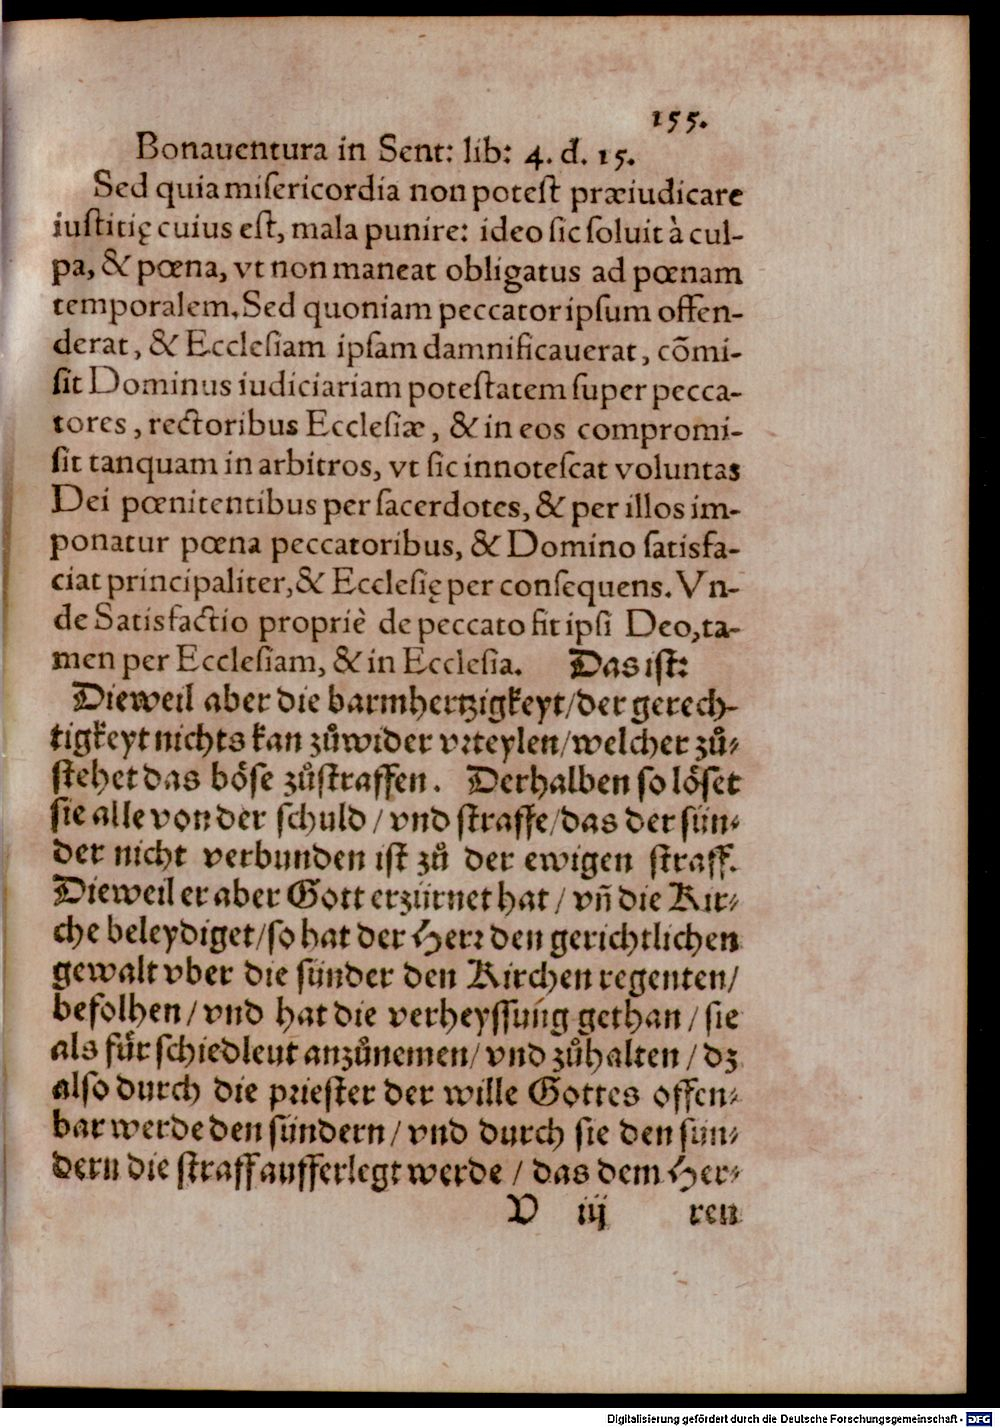 155.
Bonauentura in Sent: lib: 4. d. 15.
Sed quia miſericordia non poteſt præiudicare
iuſtitię cuius eſt, mala punire: ideo ſic ſoluit à cul-
pa, & pœna, vt non maneat obligatus ad pœnam
temporalem. Sed quoniam peccator ipſum offen-
derat, & Eccleſiam ipſam damnificauerat, cõmi-
ſit Dominus iudiciariam poteſtatem ſuper pecca-
tores, rectoribus Eccleſiæ, & in eos compromi-
ſit tanquam in arbitros, vt ſic innoteſcat voluntas
Dei pœnitentibus per ſacerdotes, & per illos im-
ponatur pœna peccatoribus, & Domino ſatisfa-
ciat principaliter, & Eccleſię per conſequens. Vn-
de Satisfactio propriè de peccato fit ipſi Deo, ta-
men per Eccleſiam, & in Eccleſia. Das iſt:
Dieweil aber die barmhertzigkeyt/der gerech-
tigkeyt nichts kan zůwider vrteylen/welcher zů-
ſtehet das böſe zůſtraffen. Derhalben ſo löſet
ſie alle von der ſchuld/vnd ſtraffe/das der ſün-
der nicht verbunden iſt zů der ewigen ſtraff.
Dieweil er aber Gott erzürnet hat/vñ die Kir-
che beleydiget/ſo hat der Herr den gerichtlichen
gewalt vber die ſünder den Kirchen regenten/
befolhen/vnd hat die verheyſſung gethan/ſie
als für ſchiedleut anzůnemen/vnd zůhalten/dz
alſo durch die prieſter der wille Gottes offen-
bar werde den ſündern/vnd durch ſie den ſün-
dern die ſtraff aufferlegt werde/das dem Her-
V iij ren
Digitalisierung gefördert durch die Deutsche Forschungsgemeinschaft - DFG